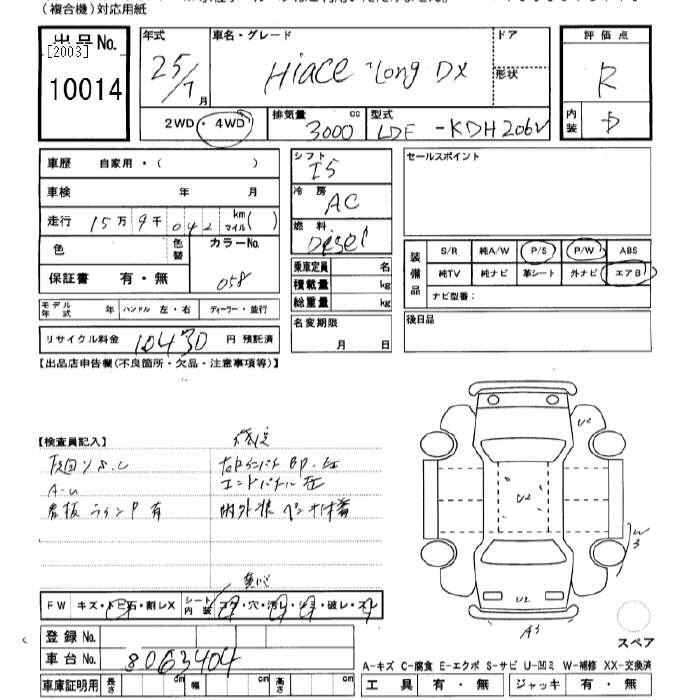 (複合機)対応用紙
出品No.
[2003]
10014
年式 25/7 月
車名・グレード Hiace Long DX
ドア
形状
2WD・4WD
排気量 3000 cc
型式 LDF-KDH206V
評価点 R
内装 D
車歴 自家用・( )
車検 年 月
走行 15万9千042 km マイル( )
色 色替 カラーNo. 058
保証書 有・無
モデル年式 年 ハンドル 左・右 ディーラー・並行
リサイクル料金 10430 円 預託済
シフト I5
冷房 AC
燃料 Diesel
乗車定員 名
積載量 kg
総重量 kg
名変期限
月 日
セールスポイント
装備品
S/R 純A/W P/S P/W ABS
純TV 純ナビ 革シート 外ナビ エアB
ナビ型番:
後日品
【出品店申告欄(不良箇所・欠品・注意事項等)】
【検査員記入】
A-U
看板 ライン 有
U2
U2
U2
W3
A3
FW キズ・トビ石・割レX
シート内装 コゲ・穴・汚レ・シミ・破レ・スレ
登録No.
車台No. 8063404
車庫証明用 長さ cm 幅 cm 高さ cm
スペア
A-キズ C-腐食 E-エクボ S-サビ U-凹ミ W-補修 XX-交換済
工具 有・無 ジャッキ 有・無